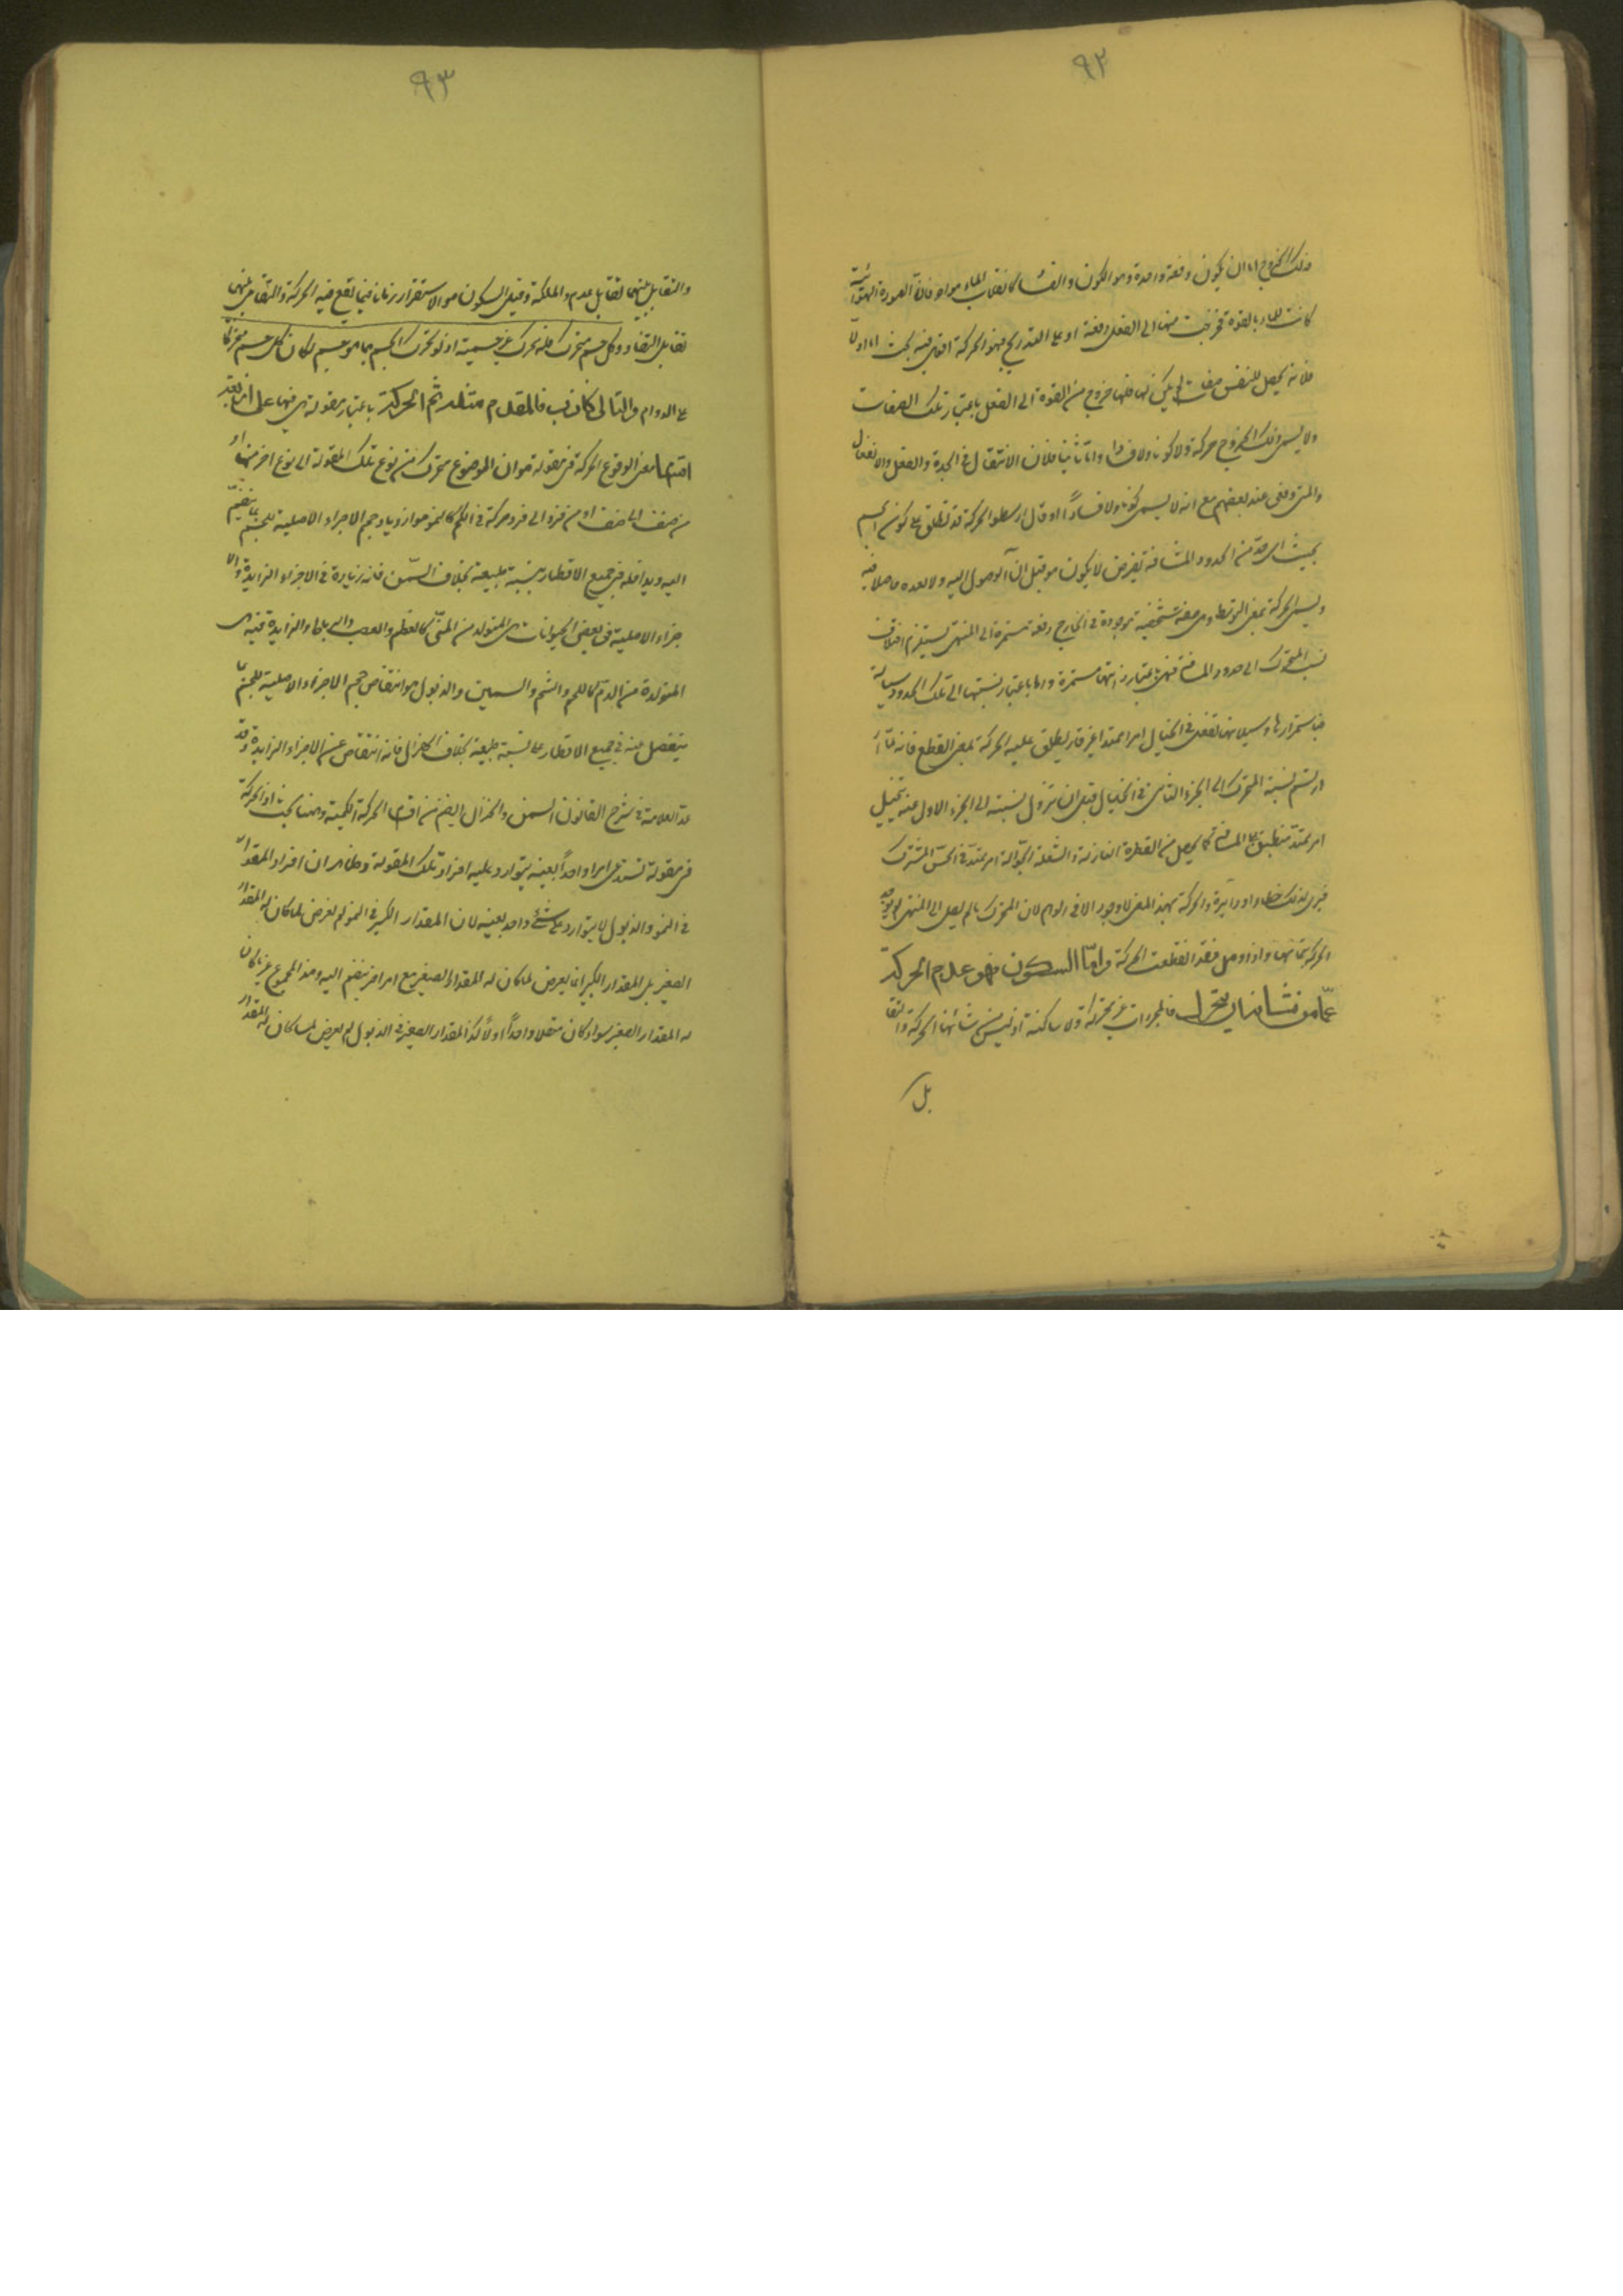 ٩٢
ذلك الخروج اما ان يكون دفعة واحدة وهو الكون والفساد كانقلاب الماء هواء فان الصورة الهوائية
كانت للماء بالقوة فخرجت منها الى الفعل دفعة او على التدريج فهو الحركة اقول فيه بحث اما اولا
فلانه يحصل للنفس صفات لم يكن لها فلها خروج من القوة الى الفعل باعتبار تلك الصفات
ولا يسمى ذلك الخروج حركة ولا كونا ولا فسادا واما ثانيا فلان الانتقال في الجدة والفعل والانفعال
والمتى دفعى عند بعضهم مع انه لا يسمى كونا ولا فسادا وقال ارسطو الحركة قد تطلق على كون الجسم
بحيث اى حد من الحدود المسافة تفرض لا يكون هو قبل ان الوصول اليه ولا بعده حاصلا فيه
ويسمى الحركة بمعنى التوسط وهى صفة شخصية موجودة في الخارج دفعة مستمرة الى المنتهى تستلزم اختلاف
نسب المتحرك الى حدود المسافة فهى باعتبار ذاتها مستمرة وباعتبار نسبتها الى تلك الحدود سيالة
فباستمرارها وسيلانها تفعل في الخيال امرا ممتدا غير قار يطلق عليه الحركة بمعنى القطع فانه لما ا
رتسم نسبة المتحرك الى الجزء الثانى في الخيال قبل ان تزول نسبته الى الجزء الاول عنه تخيل
امر ممتد منطبق على المسافة كما يحصل من القطرة النازلة والشعلة الجوالة امر ممتد في الحس المشترك
فيرى لذلك خطا او دايرة والحركة بهذا المعنى لا وجود الا في الوهم لان المتحرك ما لم يصل الى المنتهى لم يوجد
الحركة بتمامها واذا وصل فقد انقطعت الحركة واما السكون فهو عدم الحركة
عما من شانه ان يتحرك فالمجردات غير متحركة ولا ساكنة اذ ليس من شانها الحركة والتقا
بل
٩٣
والتقابل بينهما تقابل عدم والملكة وقيل السكون هو الاستقرار زمانا فيما يقع فيه الحركة والتقابل بينهما
تقابل التضاد وكل جسم متحرك فله محرك غير جسميته اذ لو تحرك الجسم بما هو جسم لكان كل جسم متحركا
على الدوام والتالى كاذب فالمقدم مثله ثم الحركة باعتبار مقولة هى فيها على اربعة
اقسام معنى الوقوع الحركة فى مقولة هو ان الموضوع يتحرك من نوع تلك المقولة الى نوع اخر منها او
من صنف الى صنف او من فرد الى فرد حركة في الكم كالنمو هو ازدياد حجم الاجزاء الاصلية للجسم بما ينضم
اليه ويداخله في جميع الاقطار بنسبة طبيعة بخلاف السمن فانه زيادة في الاجزاء الزايدة والا
جزاء الاصلية في بعض الحيوانات هى المتولد من المنى كالعظم والعصب والرباط والزايدة فيه هى
المتولدة من الدم كاللحم والشحم والسمين والذبول هو انتقاص حجم الاجزاء الاصلية للجسم بما
ينفصل عنه في جميع الاقطار على نسبة طبيعة بخلاف الهزال فانه انتقاص عن الاجزاء الزايدة وقد
عد العلامة في شرح القانون السمن والهزال ايضا من اقسام الحركة الكمية وههنا بحث اذ الحركة
في مقولة تستدعى امرا واحدا بعينه يتوارد عليه افراد تلك المقولة وظاهر ان افراد المقدار
في النمو والذبول لا يتوارد على شئ واحد بعينه لان المقدار الكبير في النمو لم يعرض لما كان له المقدار
الصغير بل المقدار الكبير انما يعرض لما كان له المقدار الصغير مع امر اخر ينضم اليه وهذا المجموع غير ما كان
له المقدار الصغير سواء كان متصلا واحدا او لا وكذا المقدار الصغير في الذبول لم يعرض لما كان له المقدار